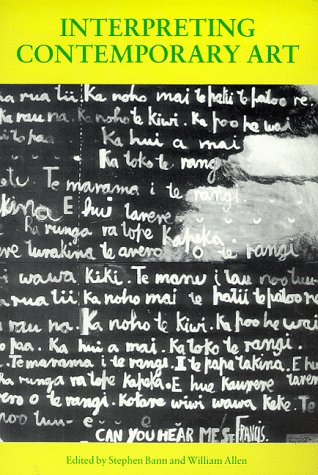 INTERPRETING
CONTEMPORARY ART
a rua tii. Ka noho mai te patii te patoo re.
rau na. Ka noho te kiwi. Ka poo he wai
to paa. Ka hui a mai
Ka toko te rangi
Te marama i te rangi.
kina E hui
ka runga ra tope Kapeka
ere turakina te avero o te rangi
i wawa kiki. Te manu i tau noo
a rua tii Ka noho mai te patii te patoo re
rau na. Ka noho te kiwi. Ka poo he wai
paa. Ka hui a mai. Ka toko te rangi.
Te marama i te rangi. I te pape takina. E hui
ka runga ra tope kapeka. E hue kaurere taver
avero o te rangi. Kotare wiwi wawa keke. Te
CAN YOU HEAR ME ST. FRANCIS.
Edited by Stephen Bann and William Allen